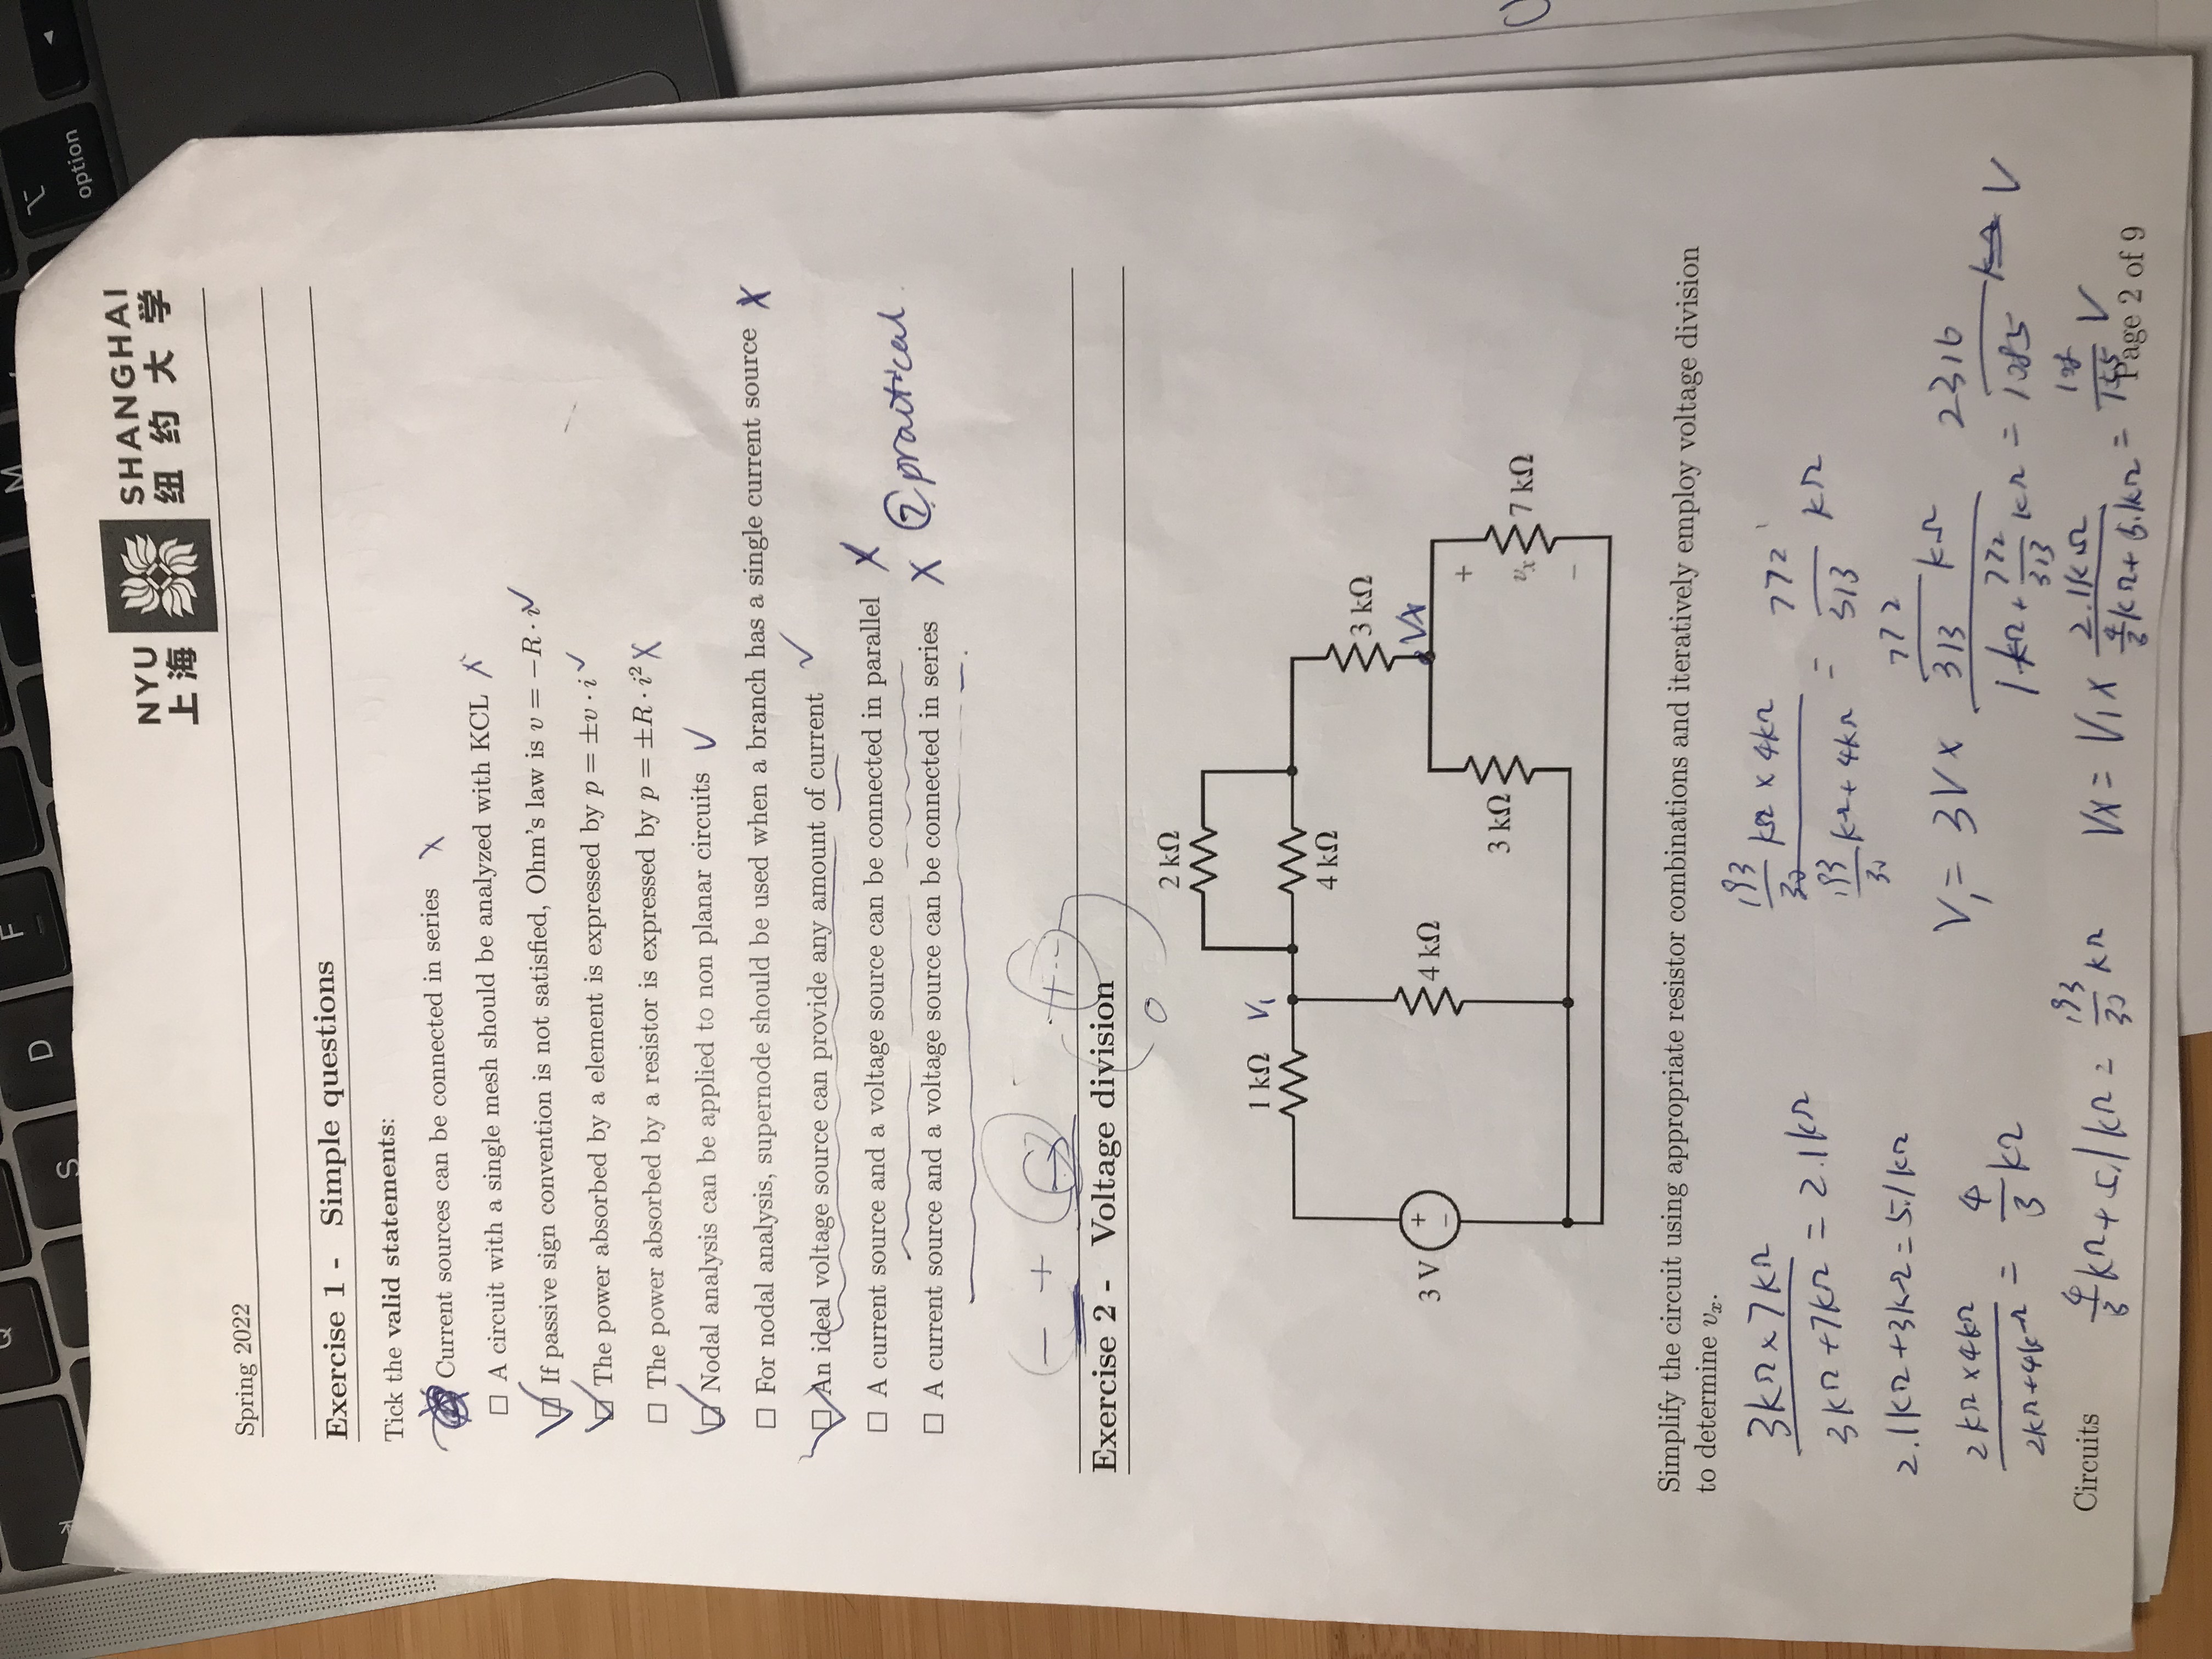 Q
F
M
S
D
option
NYU SHANGHAI
上海 纽约大学
Spring 2022
Exercise 1 - Simple questions
Tick the valid statements:
Current sources can be connected in series X
☐ A circuit with a single mesh should be analyzed with KCL X
☑ If passive sign convention is not satisfied, Ohm's law is v = −R · i ✓
☑ The power absorbed by a element is expressed by p = ±v · i ✓
☐ The power absorbed by a resistor is expressed by p = ±R · i² X
☑ Nodal analysis can be applied to non planar circuits ✓
☐ For nodal analysis, supernode should be used when a branch has a single current source X
☑ An ideal voltage source can provide any amount of current ✓
☐ A current source and a voltage source can be connected in parallel X
? practical
☐ A current source and a voltage source can be connected in series X
− + → + -
Exercise 2 - Voltage division
2 kΩ
1 kΩ V₁
4 kΩ
3 kΩ
Vx
3 V + −
4 kΩ
+
3 kΩ
vₓ 7 kΩ
−
Simplify the circuit using appropriate resistor combinations and iteratively employ voltage division
to determine vₓ.
3kΩ×7kΩ / 3kΩ+7kΩ = 2.1kΩ
2.1kΩ+3kΩ = 5.1kΩ
2kΩ×4kΩ / 2kΩ+4kΩ = 4/3 kΩ
4/3 kΩ + 5.1kΩ = 193/30 kΩ
193/30 kΩ × 4kΩ / 193/30 kΩ + 4kΩ = 772/313 kΩ
V₁ = 3V × 772/313 kΩ / 1kΩ + 772/313 kΩ = 2316/1085 V
Vx = V₁ × 2.1kΩ / 4/3 kΩ + 5.1kΩ = V
Circuits
Page 2 of 9